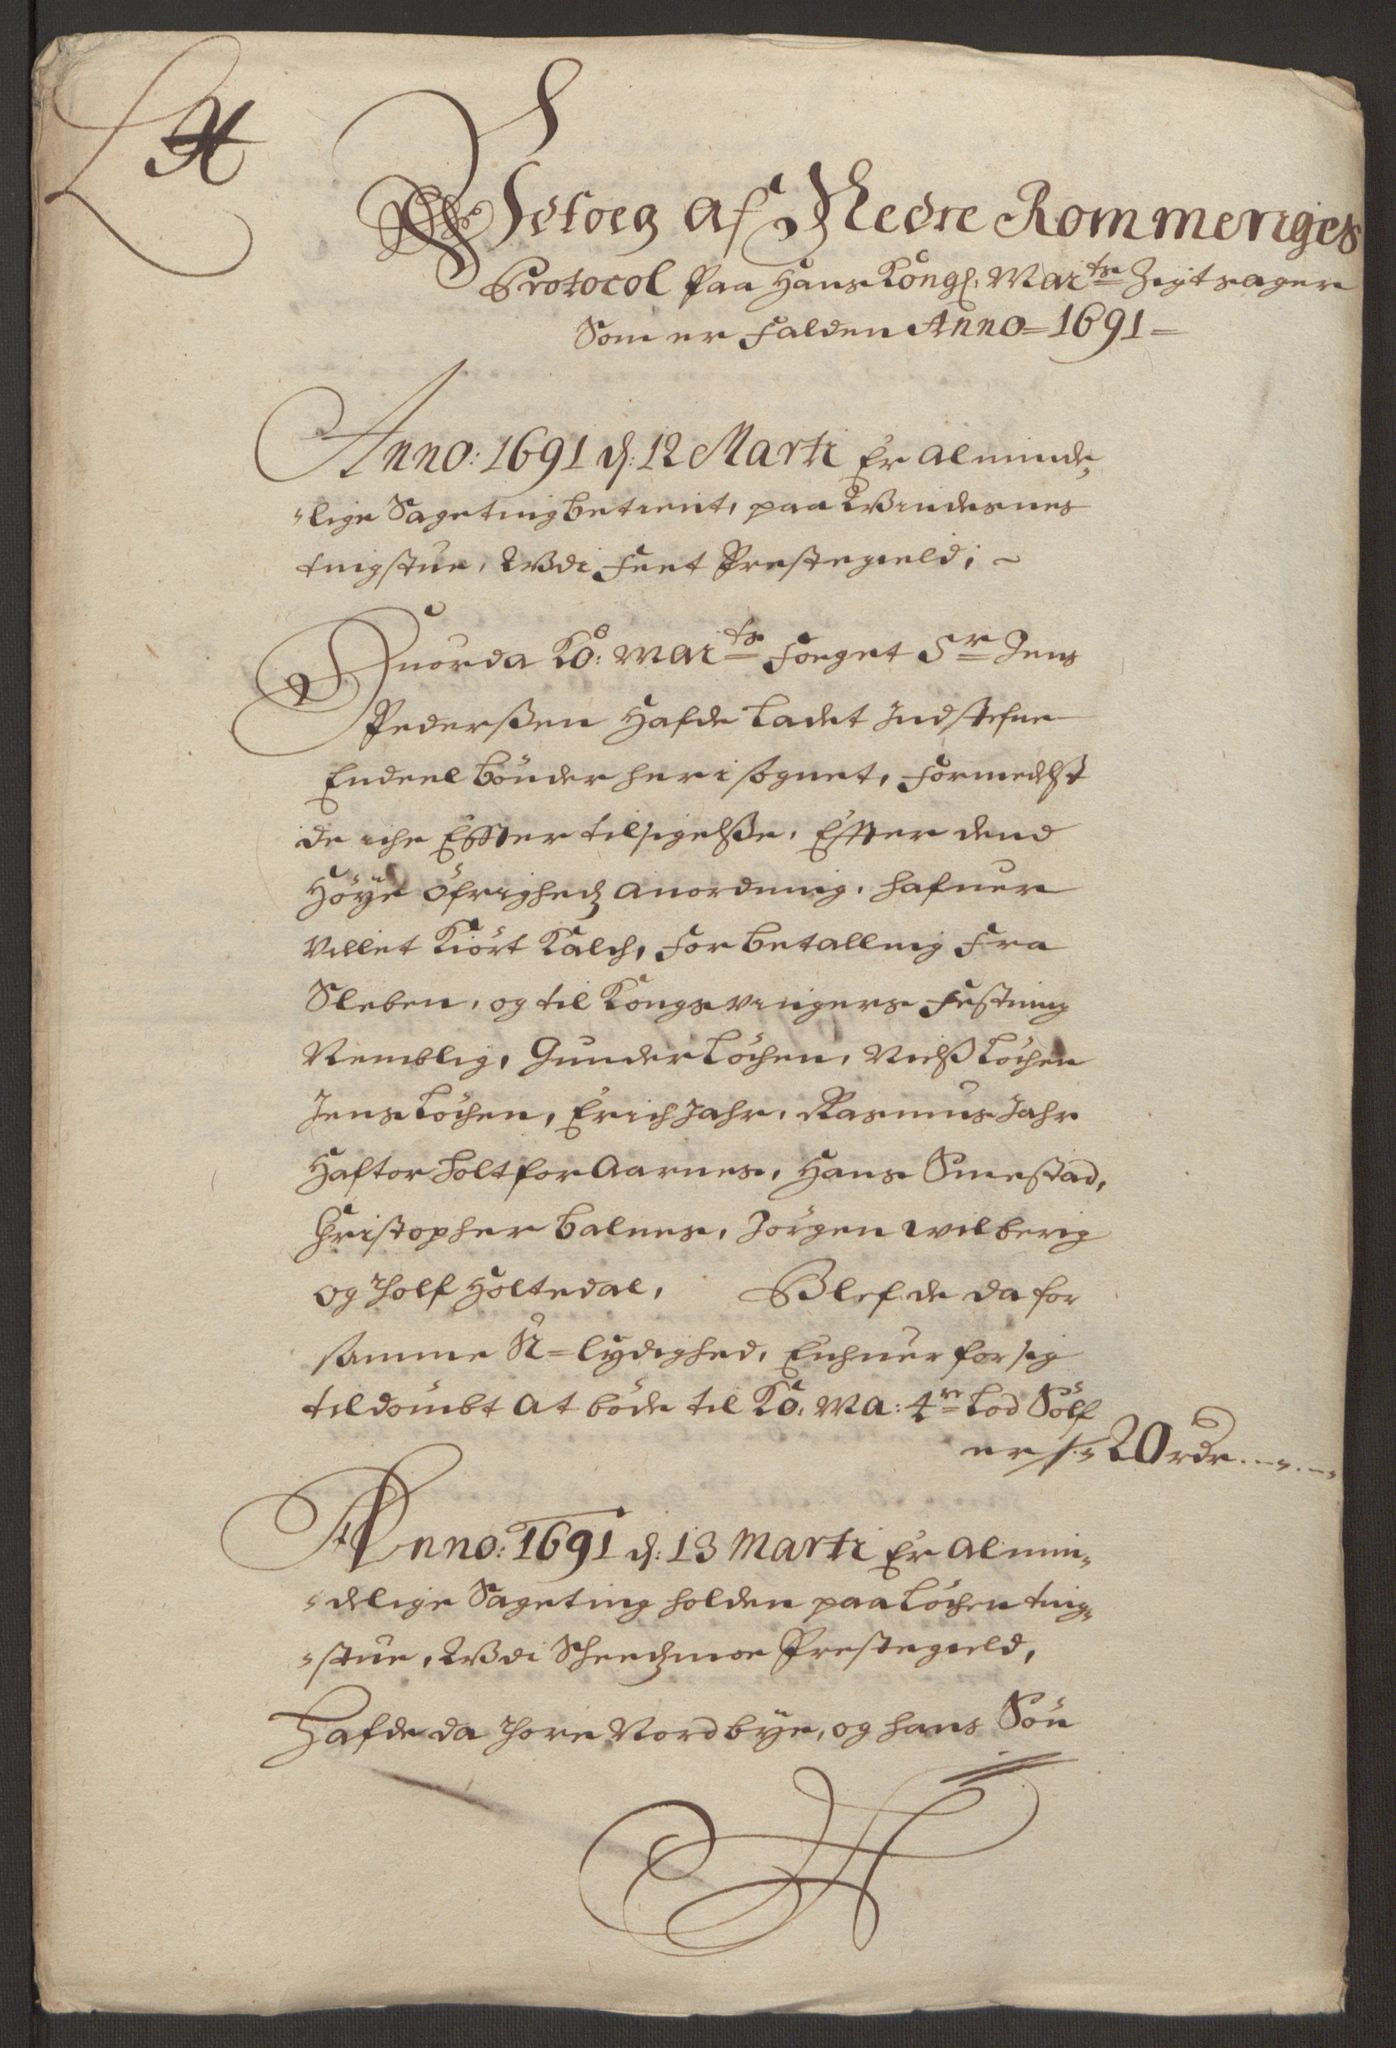 Lit A
Udtoeg af Nedre Rommeriges
Protocol Paa Hans Kongl: Maÿts Zigtsager
Som er Falden Anno 1691
Anno: 1691 d: 12 Marti Er alminde-
lige Sageting betient, paa Windesnes
tingstue, Udi Feet Prestegield;
Huorda Ko: Maits Foeget Sr Jens
Pederßen Hafde Ladet Indstefne
Endeel bönder her i sognet, Formedelst
de iche Effter tilsigelße, Effter dend
Höye öfrigheds anordning, hafuer
villet Kiört Kalch, For betalling Fra
Sleben, og til Kongsvingers Festning
Nemblig, Gunder Löchen, Nielß Löchen
Jens Löchen, Erich Jahr, Rasmus Jahr
Haftor Holt for Aarnes, Hans Smestad,
Christopher Balnes, Jörgen Wilberig
og Tholf Holtedal, Blef de da for
samme U-lydighed, Enhuer for sig
tildömbt at böde til Ko: Ma: 4re Lod Sölf
er 20 rdr
Anno: 1691 d: 13 Marti Er almin-
delige Sageting holden paa Löchen ting-
stue, Udi Scheedsmoe Prestegield,
Hafde da Thore Nordbye, og hans Sön